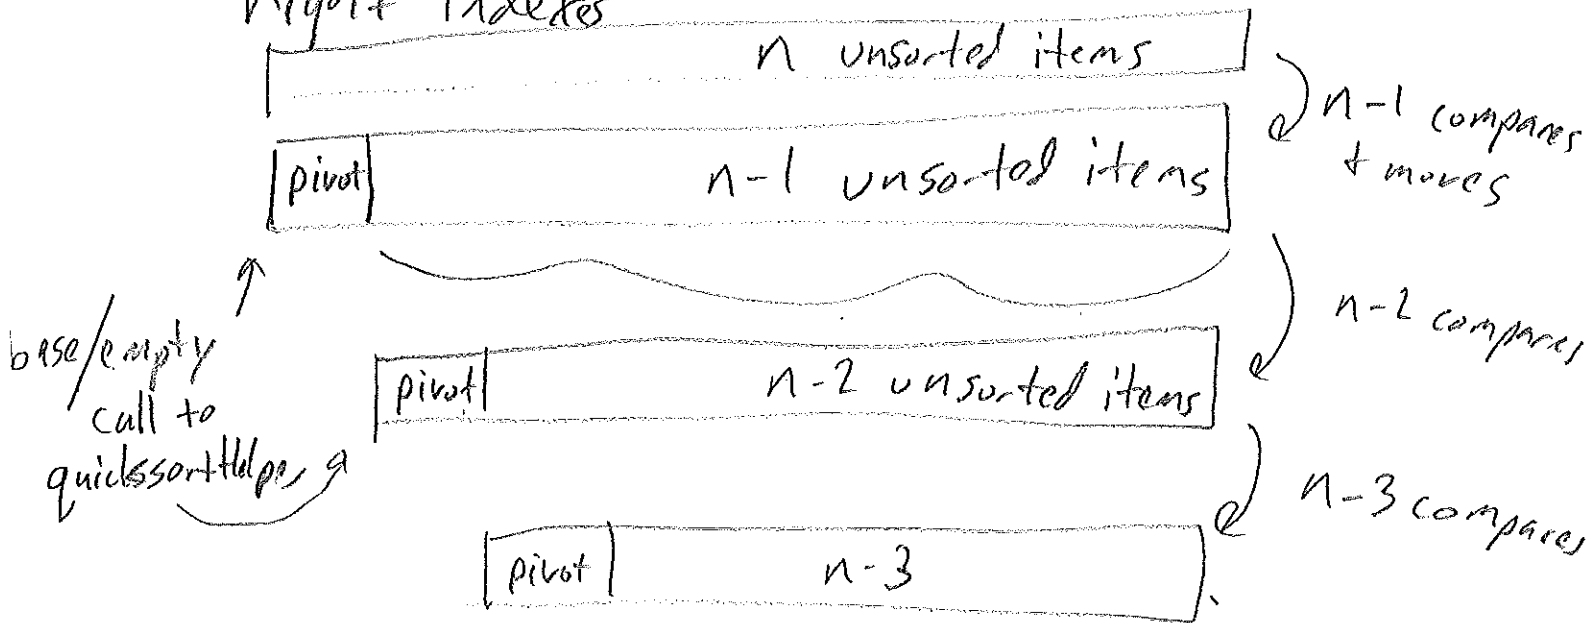 indexes
n unsorted items
n-1 compares
+ moves
pivot
n-1 unsorted items
n-2 compares
base/empty
call to
quickssortHelper
pivot
n-2 unsorted items
n-3 compares
pivot
n-3